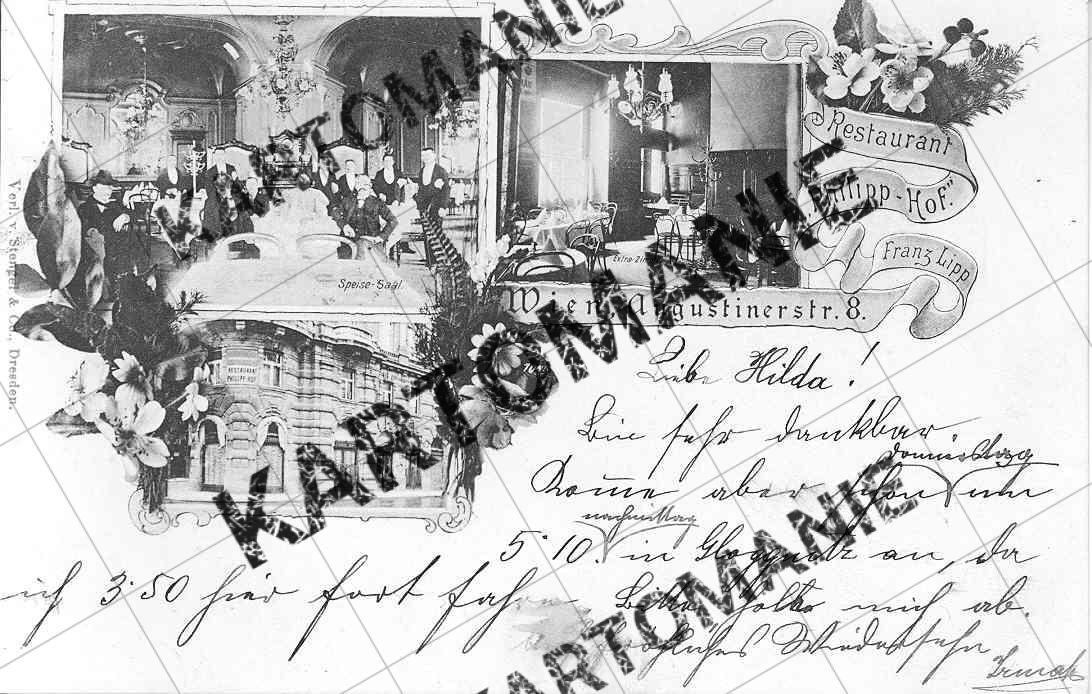 KARTOMANIE
KARTOMANIE
KARTOMANIE
KARTOMANIE
KARTOMANIE
Restaurant
"Philipp-Hof."
Franz Lipp
Speise-Saal.
Extra-Zi
Wien, Augustinerstr. 8.
RESTAURANT
PHILIPP-HOF
Verl. v. Stengel & Co., Dresden.
Liebe Hilda!
Bin sehr dankbar
Donnerstag
Komme aber schon um
nachmittag
5.10. in Gloggnitz an, da
ich 3.50 hier fort fahre Bitte holt mich ab.
fröhliches Wiedersehn